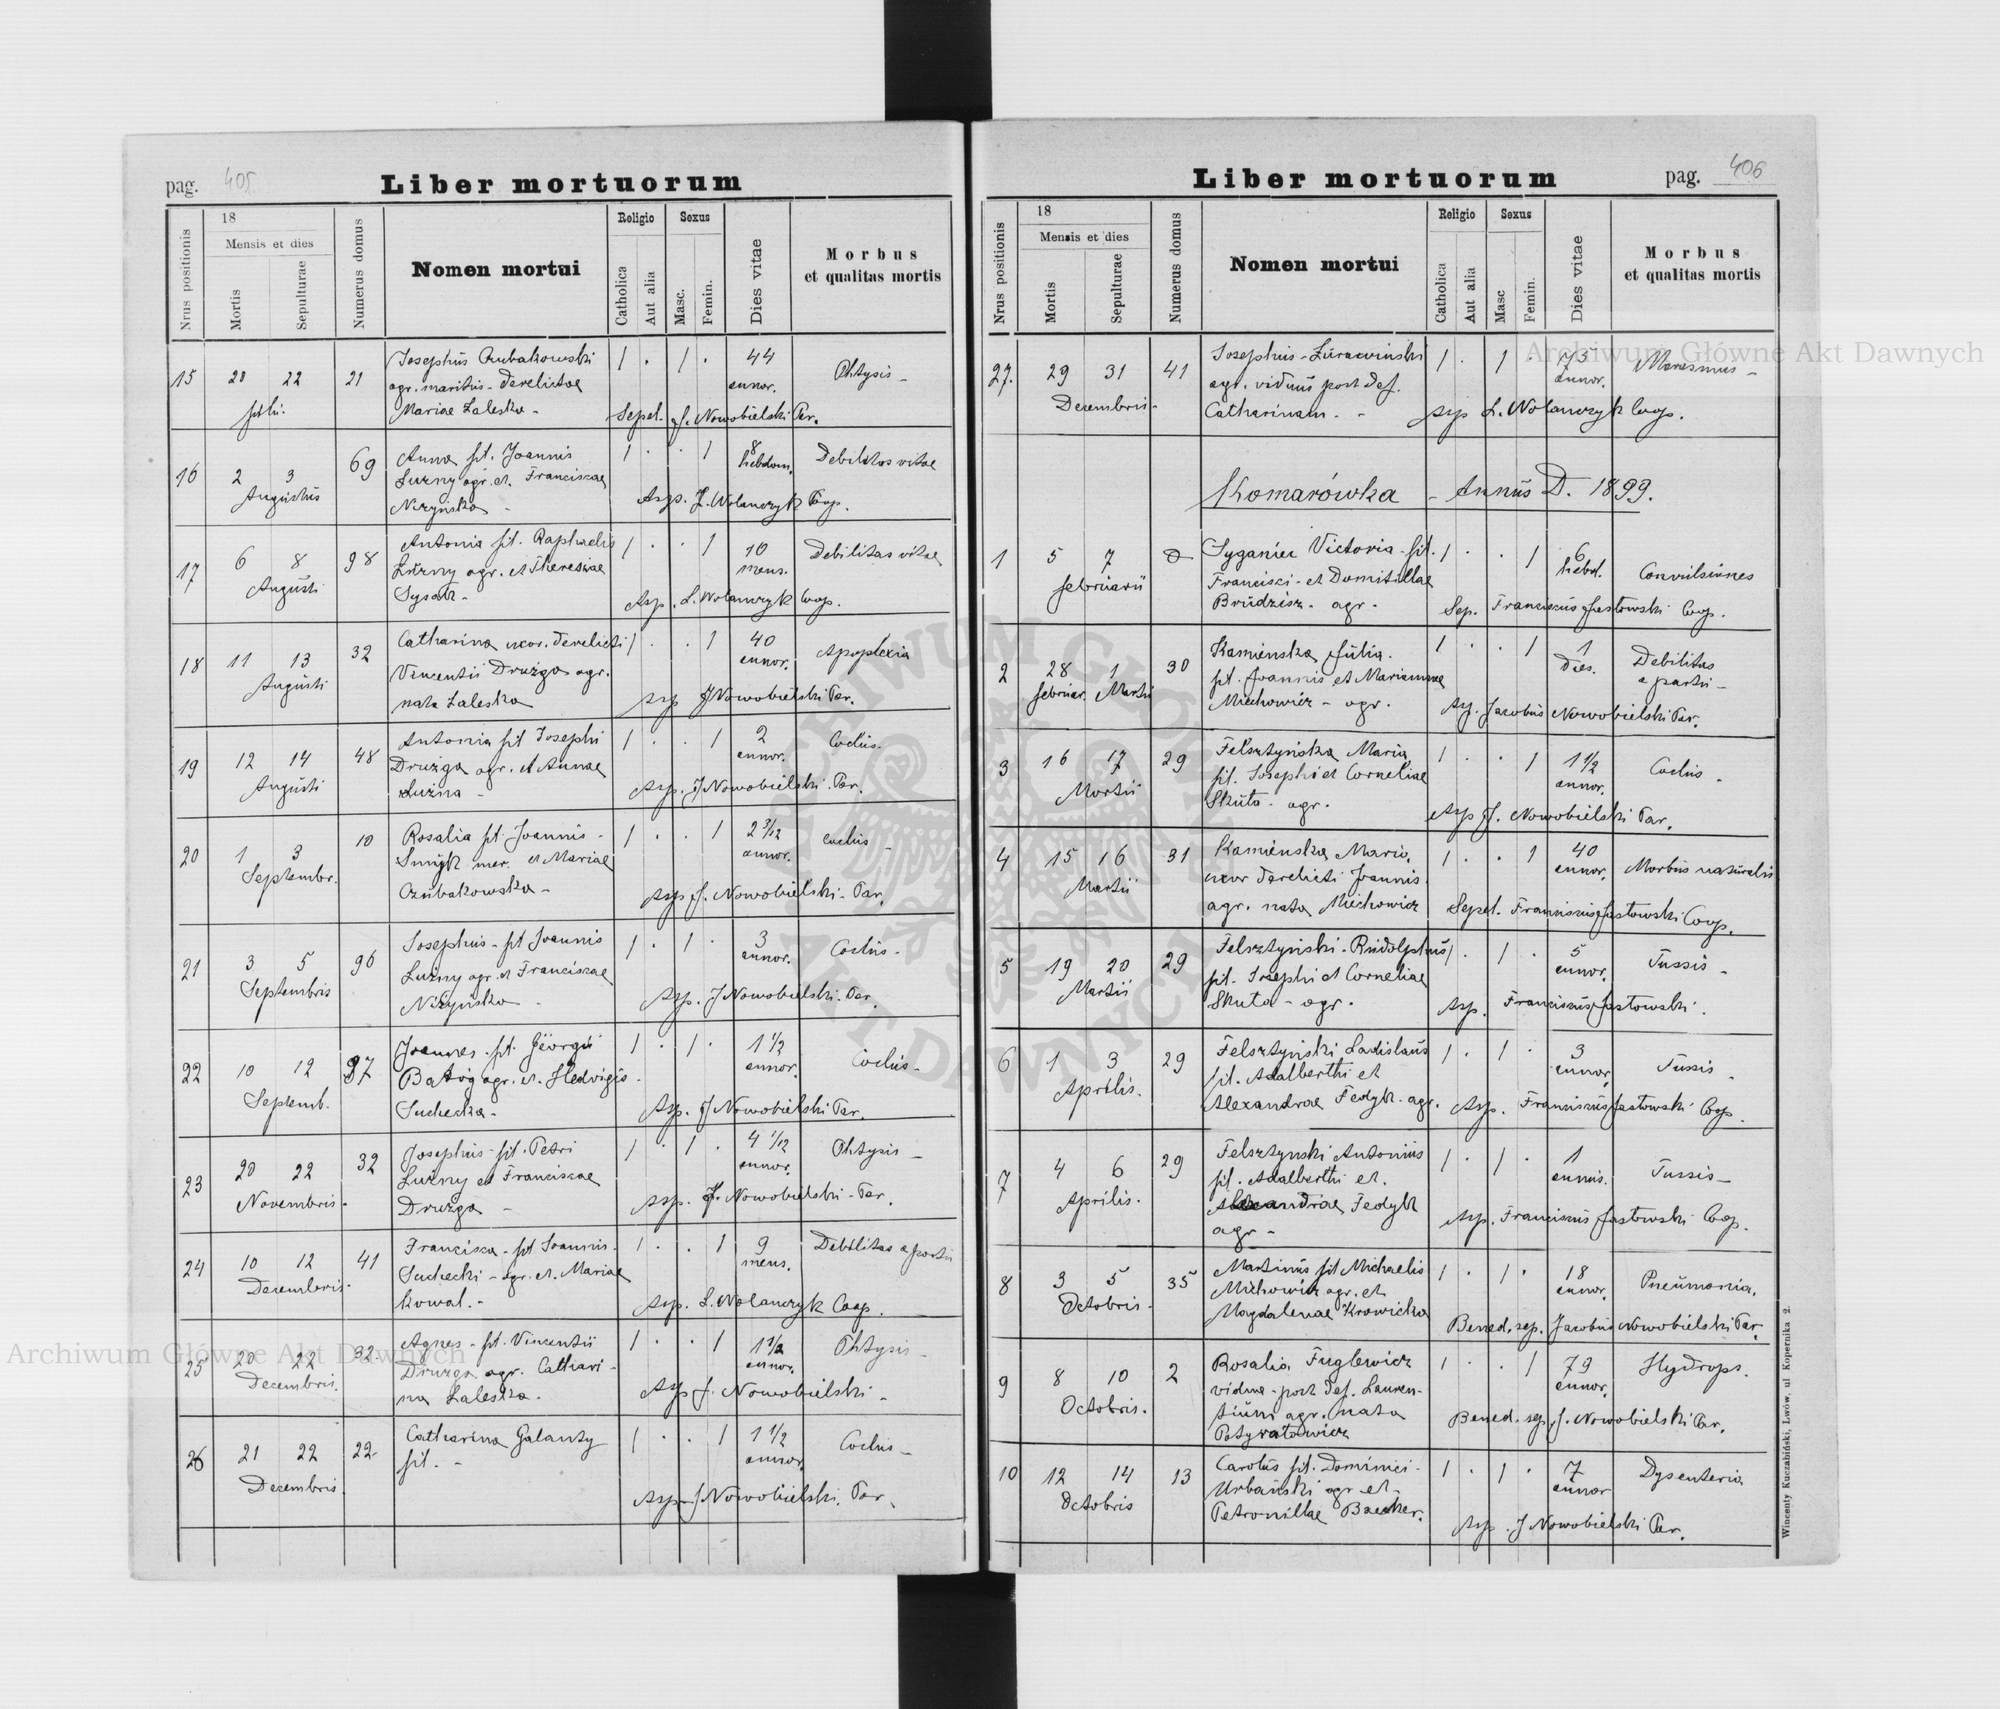 pag. 405.
Liber mortuorum
Nrus positionis
18
Mensis et dies
Mortis
Sepulturae
Numerus domus
Nomen mortui
Religio
Catholica
Aut alia
Sexus
Masc.
Femin.
Dies vitae
Morbus
et qualitas mortis
15 20 22 21 Josephus Czubakowski 1 . 1 . 44 Phtysis -
agr. maritus - derelictae annor.
Julii. Mariae Zaleska - Sepel. J. Nowobielski Par.
16 2 3 69 Anna fil. Joannis 1 . . 1 8 Debilitas vitae
Augustus Luzny agr. et. Franciscae hebdom.
Nizynska - Asp. L. Wolanczyk Coop.
17 6 8 98 Antonia fil. Raphaelis 1 . . 1 10 Debilitas vitae
Augusti Luzny agr. et Theresiae mens.
Sysak - Asp. L. Wolanczyk Coop.
18 11 13 32 Catharina uxor. derelicti 1 . . 1 40 Apoplexia
Augusti Vincentii Druzga agr. annor.
nata Zaleska Asp J Nowobielski Par.
19 12 14 48 Antonia fil Josephi 1 . . 1 2 Coclus.
Augusti Druzga agr. et Annae annor.
Luzna - Asp. J Nowobielski. Par.
20 1 3 10 Rosalia fil. Joannis - 1 . . 1 2 3/12 Coclus -
Septembr. Smyk mer. et Mariae annor.
Czubakowska - Asp J. Nowobielski - Par.
21 3 5 96 Josephus - fil Joannis 1 . 1 . 3 Coclus -
Septembris Luzny agr. et Franciscae annor.
Nizynska - Asp. J Nowobielski - Par.
22 10 12 97 Joannes - fil. Georgii 1 . 1 . 1 1/2 Coclus -
Septemb. Batog agr. et. Hedvigis - annor.
Suchecka - Asp. J Nowobielski Par.
23 20 22 32 Josephus - fil. Petri 1 . 1 . 4 1/12 Phtysis -
Novembris - Luzny et Franciscae annor.
Druzga - Asp. J. Nowobielski - Par.
24 10 12 41 Francisca - fil Joannis - 1 . . 1 9 Debilitas a partu
Decembris - Suchecki - agr. et. Mariae mens.
Kowal. - Asp. L. Wolanczyk Coop.
25 20 22 32 Agnes - fil. Vincentii 1 . . 1 1 1/2 Phtysis -
Decembris. Druzga agr. Cathari - annor.
na Zaleska. Asp J. Nowobielski -
26 21 22 22 Catharina Galanty 1 . . 1 1 1/2 Coclus -
Decembris fil. - annor.
Asp - J Nowobielski. Par.
pag. 406
Liber mortuorum
Nrus positionis
18
Mensis et dies
Mortis
Sepulturae
Numerus domus
Nomen mortui
Religio
Catholica
Aut alia
Sexus
Masc
Femin.
Dies vitae
Morbus
et qualitas mortis
27. 29 31 41 Josephus - Zurawinski 1 . 1 . 75 Marasmus -
Decembris - agr. viduus post def. annor.
Catharinam - - Asp L. Wolanczyk Coop.
Komarówka - Annus D. 1899.
1 5 7 Syganiec Victoria fil. 1 . . 1 6 Convulsiones
februarii Francisci - et Domitillae hebd.
Brudzisz - agr - Sep. Franciscus Jastowski Coop.
2 28 1 30 Kamienska Julia. 1 . . 1 1 Debilitas
februar. Martii fil. Joannis et Mariannae dies. a partu -
Miechowicz - agr. Asp. Jacobus Nowobielski Par.
3 16 17 29 Felsztynska Maria 1 . . 1 1 1/2 Coclus -
Martii fil. Josephi et Corneliae annor.
Skuta - agr. Asp J. Nowobielski Par.
4 15 16 31 Kamienska Maria, 1 . . 1 40 Morbus naturalis
Martii uxor derelicti Joannis. annor.
agr. nata Miechowicz Sepel. Franciscus Jastowski Coop.
5 19 20 29 Felsztynski - Rudolphus 1 . 1 . 5 Tussis -
Martii fil. Josephi et Corneliae annor.
Skuta - agr. Asp. Franciscus Jastowski.
6 1 3 29 Felsztynski Ladislaus 1 . 1 . 3 Tussis -
Aprilis. fil. Adalberthi et annor.
Alexandrae Fedyk - agr. Asp. Franciscus Jastowski Coop.
7 4 6 29 Felsztynski Antonius 1 . 1 . 1 Tussis -
Aprilis. fil. Adalberthi et. annus.
Alexandrae Fedyk Asp. Franciscus Jastowski Coop.
agr -
8 3 5 35 Martinus fil Michaelis 1 . 1 . 18 Pneumonia.
Octobris - Michowicz agr. et annor.
Magdalenae Krowicka Bened. sep. Jacobus Nowobielski Par.
9 8 10 2 Rosalia Fuglewicz 1 . . 1 79 Hydrops.
Octobris. vidua - post def. Lauren- annor.
tium agr. nata Bened. sep. J. Nowobielski Par.
Potyratowicz
10 12 14 13 Carolus fil. Dominici - 1 . 1 . 7 Dysenteria
Octobris Urbański agr et - annor
Petronillae Baecker. Asp. J Nowobielski Par.
Wincenty Kuczabiński, Lwów, ul Kopernika 2.
Archiwum Główne Akt Dawnych
Archiwum Główne Akt Dawnych
ARCHIWUM GŁÓWNE
AKT DAWNYCH